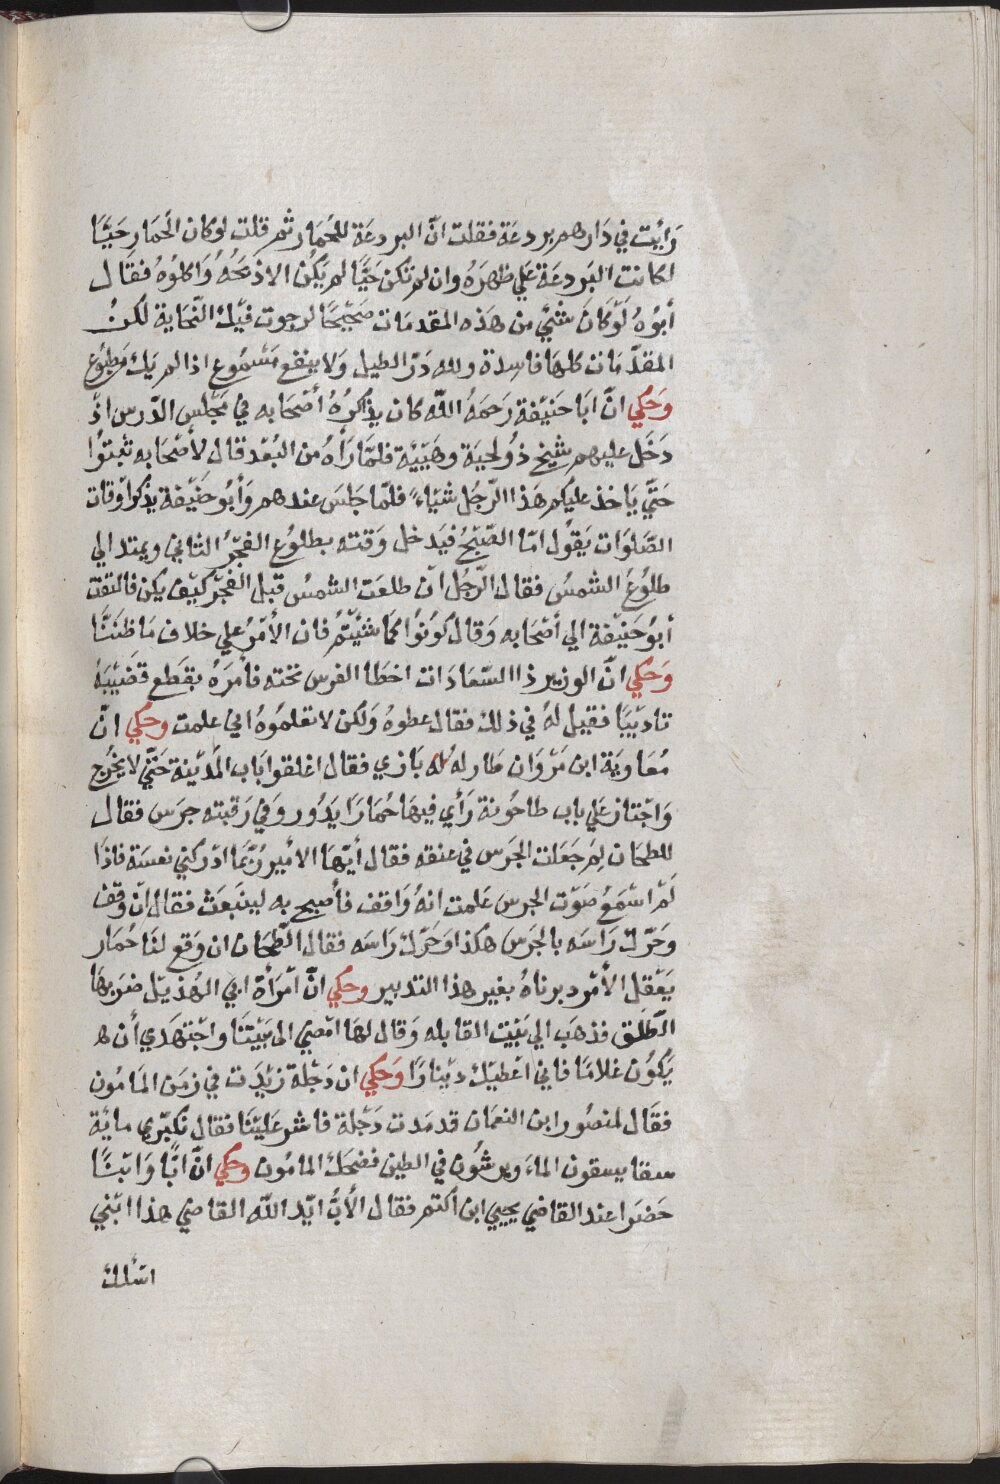 رَأيْت في دَارهم بردعَة فقلت انّ البردعَة للحُمَار ثم قلت لوكان الحُمَار حَيًّا
لكانت البَردعَة عَلي ظهرَهُ وان لم تكن حَيًّا لم يَكُن الا ذبحُوُ وَاكلوُهُ فقَال
أبُوُهُ لَوْ كَانَ شَئْي من هَذه المقدمَات صَحَيْحًا لرجوت فيْك النّجَاية لكنْ
المقدّمَات كلهَا فاسدة ولله دَرّ الطيل وَلا ينفع مَسْموع اذا لم يَك مَطبُوع
وَحَكي انَّ ابَا حَنيْفة رَحمَهُ اللّه كان يذاكرُهُ أصْحَابه في مَجْلس الدّرس اذْ
دَخَل عليهم شيْخ ذوُ لحيَة وهَيْئة فلمّا رَأهُ من البُعْد قال لأصْحَابه ثبتوُا
حَتّي يَاخذ عليكم هَذا الرّجُل شيْاءً فلمّا جَلسَ عندهم وَأبوُ حَنيْفة يذكر اوْقات
الصّلوَات يَقوُل امّا الصّبْحُ فيَدخل وَقته بطلوُع الفجْرُ الثاني ويمتد الي
طلوُعُ الشمسُ فقال الرّجُل ان طلعَت الشمسُ قبْل الفَجْر كيْف يكن فالتفت
أبوُ حَنيْفة الي أصْحَابه وَقال كوُنوُا كمَا شئْتُم فان الأمْرُ علي خلاف مَا ظنَنَّا
وَحَكي انَّ الوزير ذا السّعَادَات اخطا الفرس تحته فأمَرَهُ بقَطع قَضَيْبَهُ
تاديْبًا فقيل لهُ في ذلك فقال عطوه وَلكن لا تعلموُهُ اني علمت وحُكي انّ
مُعَاوية ابن مَرْوَان طار له لَهُ بَازي فقال اغلقوا بَاب المَديْنة حَتّي لا يَخرُج
وَاجْتاز عَلي باب طاحُونة رَأي فيهَا حُمَارًا يَدُور وَفي رَقبته جرَس فقال
للطحان لِمَ جَعَلت الجَرَس في عنقه فقال أيّهَا الأمير رُبَّمَا ادْركني نعسَة فاذا
لَمْ اسْمَعْ صَوْت الجرس عَلمت انهُ وَاقف فأصيح به لينبَعَث فقال انْ وقف
وحَرّك رَاسَه بالجَرَس هَكذا وحَرّك رَاسَه فقال الطّحَان ان وَقع لنَا حُمَار
يَعْقل الأمْر دبرناهُ بغير هذا التدبير وحُكي انَّ امْرَأة ابي الهُذيْل ضرَبهَا
الطّلق فذهَب الي بَيْت القابله وَقال لهَا امْضِي الي بَيْتَنَا واجْتهَدي أن ه
يَكُون غلامًا فاني اعْطيْك ديْنارًا وَحَكي ان دَجْلة زيْدَت في زمَن المَامُون
فقَال لمنصُور ابن النعمَان قد مَدت دَجْلة فاشر عَليْنَا فقال نكْتري مائة
سقا يسقون الماءَ ويرشوُن في الطين فضحَك المامُون وحُكي انَّ ابًا وَابْنًا
حَضَرا عند القاضي يحيي ابن اكتم فقال الأبُ ايّد اللّه القاضي هذا ابْني
اسْلك